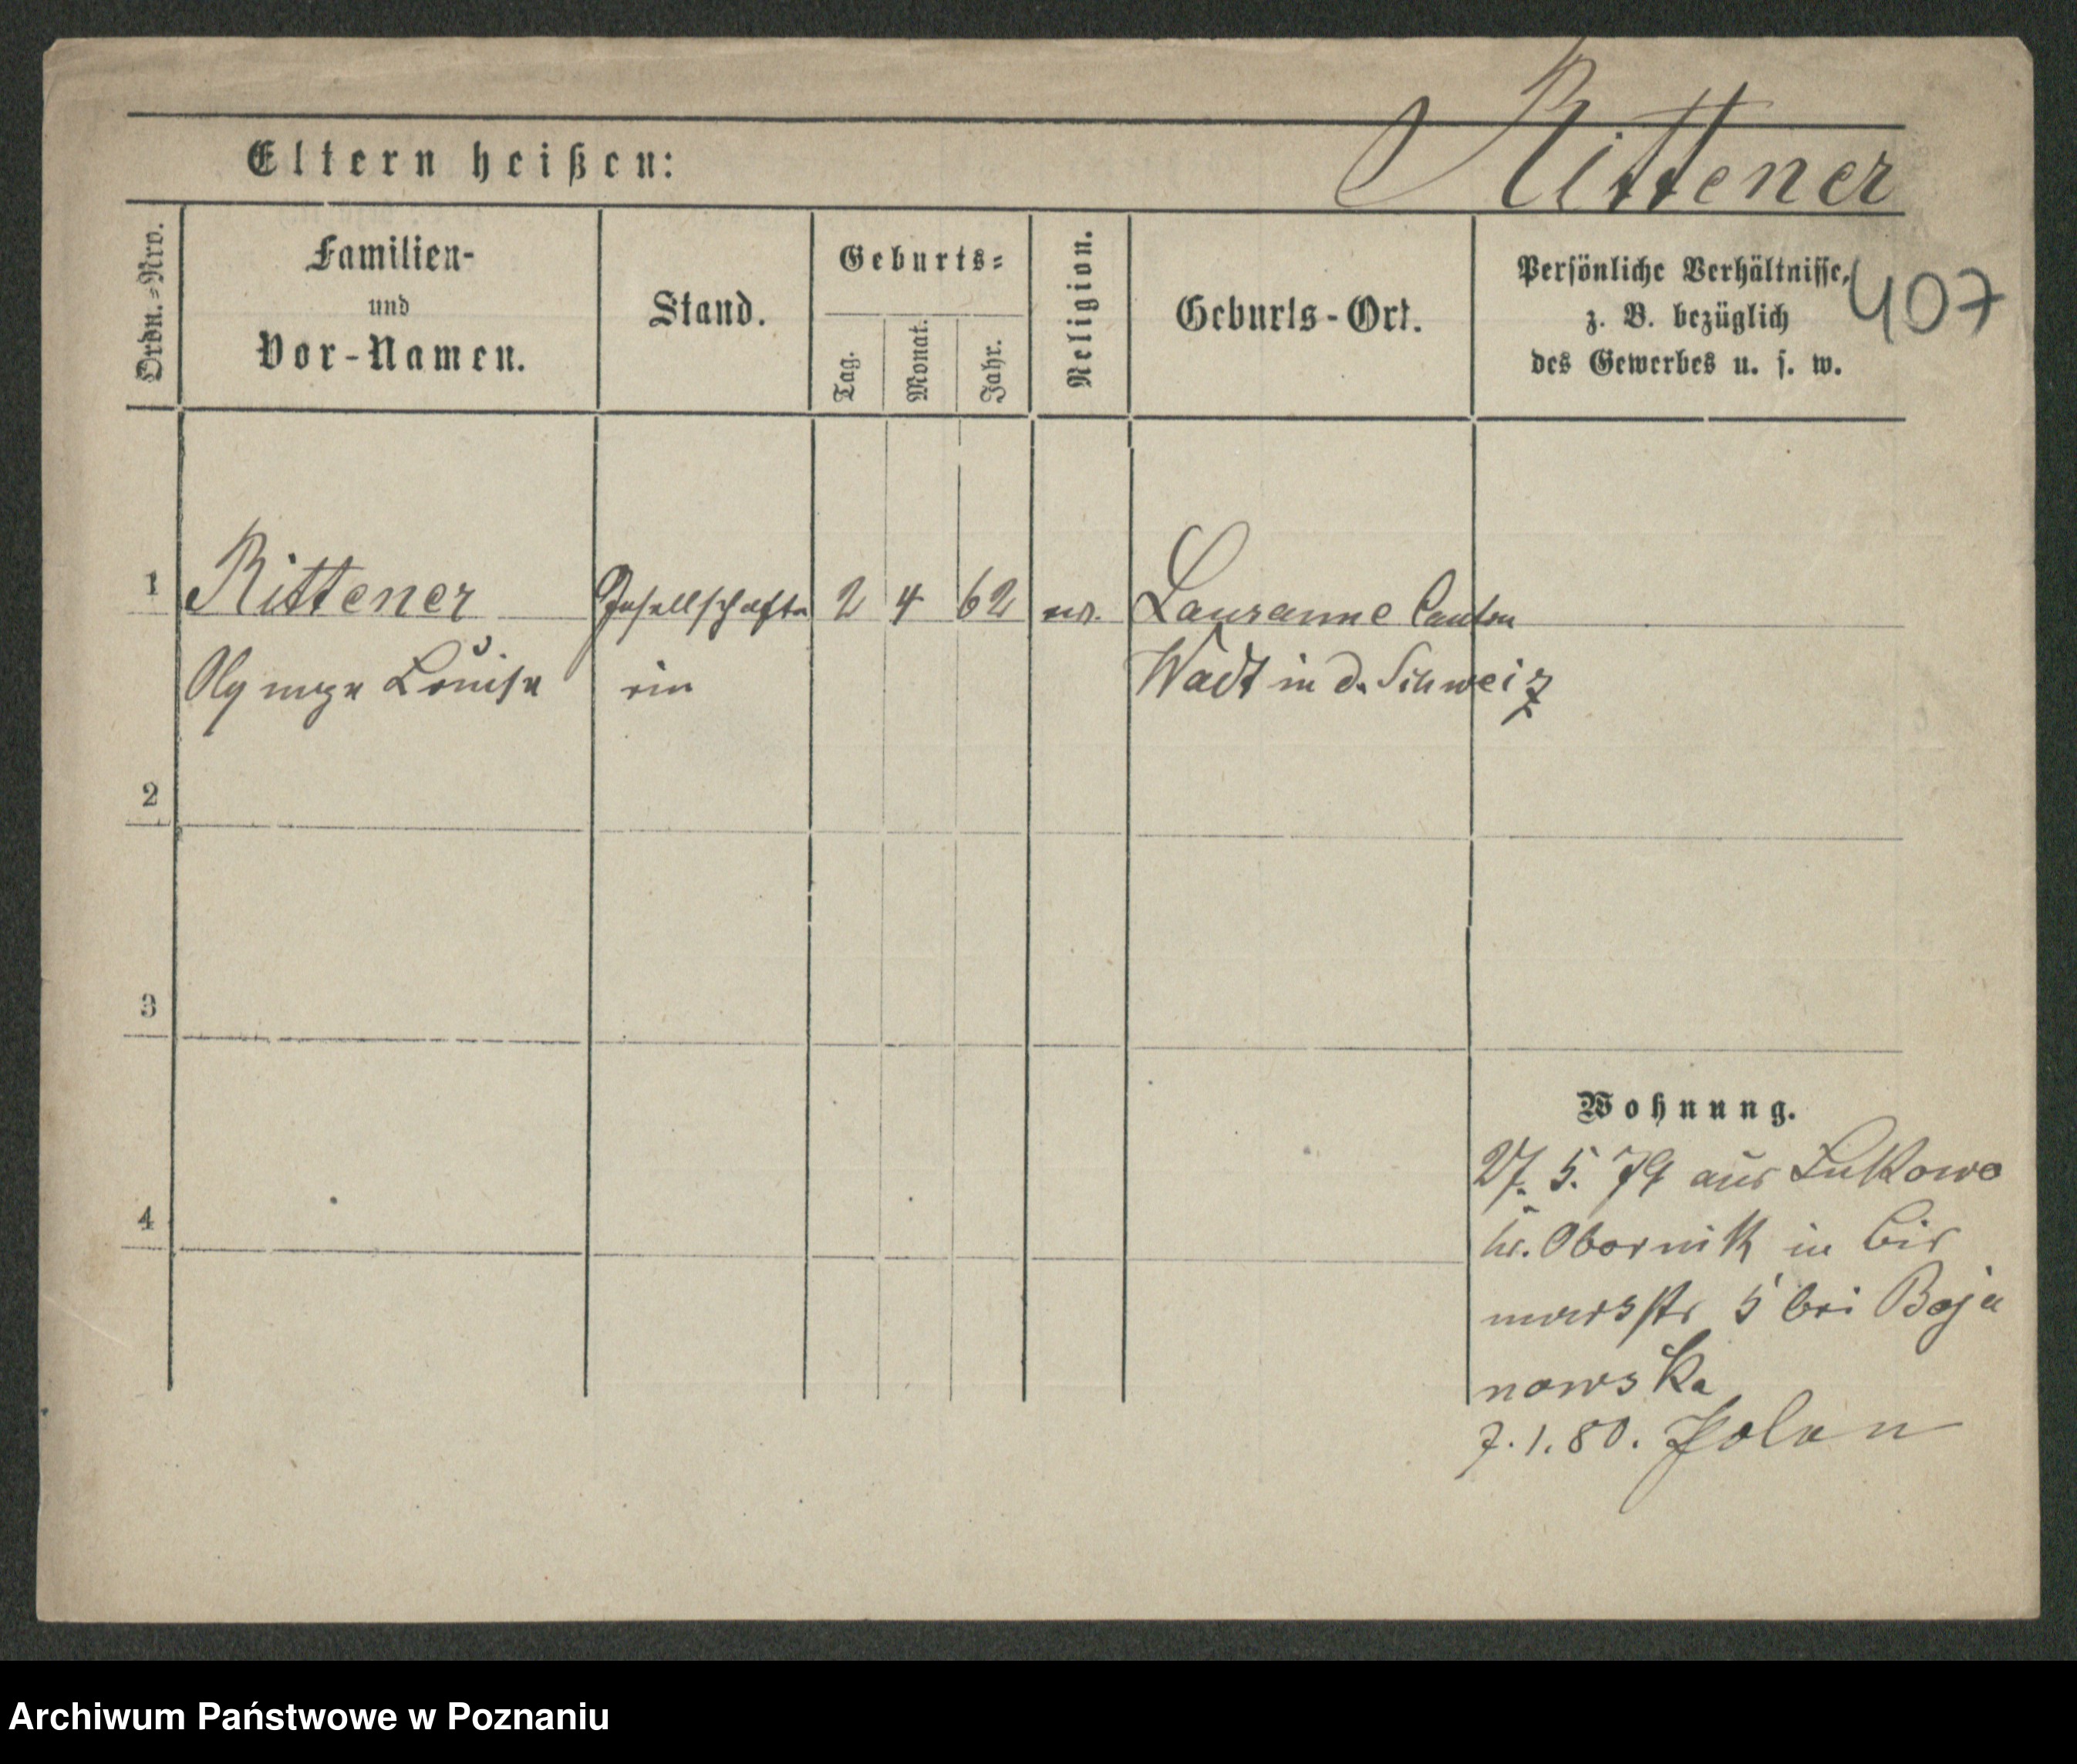 Rittener
Eltern heißen:
Ordn.-Nro.
Familien-
und
Vor-Namen.
Stand.
Geburts-
Tag.
Monat.
Jahr.
Religion.
Geburts-Ort.
Persönliche Verhältnisse,
z. B. bezüglich
des Gewerbes u. s. w.
407
1 Rittener Gesellschafte 2 4 62 ev. Lausanne Canton
Olympe Louise rin Wadt in d. Schweiz
2
3
4
Wohnung.
27. 5. 79 aus Lukowo
Kr. Obornik in Bis
marcsstr 5 bei Boja
nowska
7. 1. 80. Polen
Archiwum Państwowe w Poznaniu